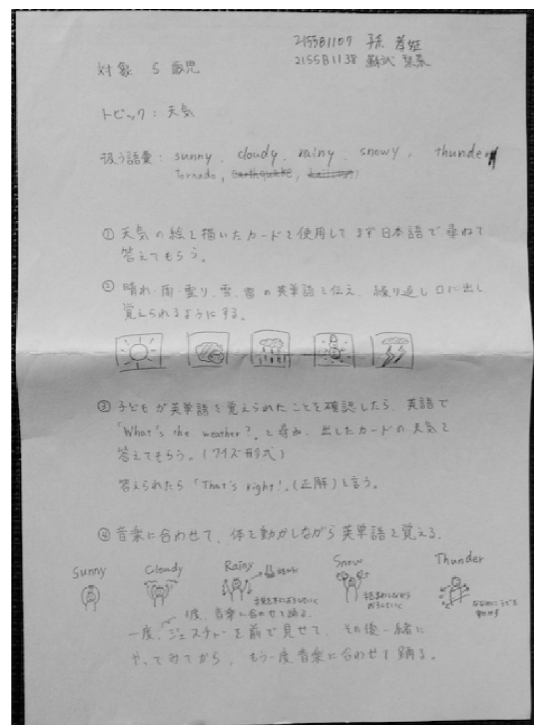 2155B1107
2155B1138
対象 5歳児
トピック：天気
扱う語彙：sunny, cloudy, rainy, snowy, thunder
Tornado,
①天気の絵を描いたカードを使用してまず日本語で尋ねて
答えてもらう。
②晴れ・雨・曇り、雪、雷の英単語を伝え、繰り返し口に出し
覚えられるようにする。
③子どもが英単語を覚えられたことを確認したら、英語で
「What's the weather?」と尋ね、出したカードの天気を
答えてもらう。(クイズ形式)
答えられたら「That's right!」(正解)と言う。
④音楽に合わせて、体を動かしながら英単語を覚える。
Sunny Cloudy Rainy Snow Thunder
1度、音楽に合わせて踊る。
一度、ジェスチャーを前で見せて、その後一緒に
やってみてから、もう一度音楽に合わせて踊る。